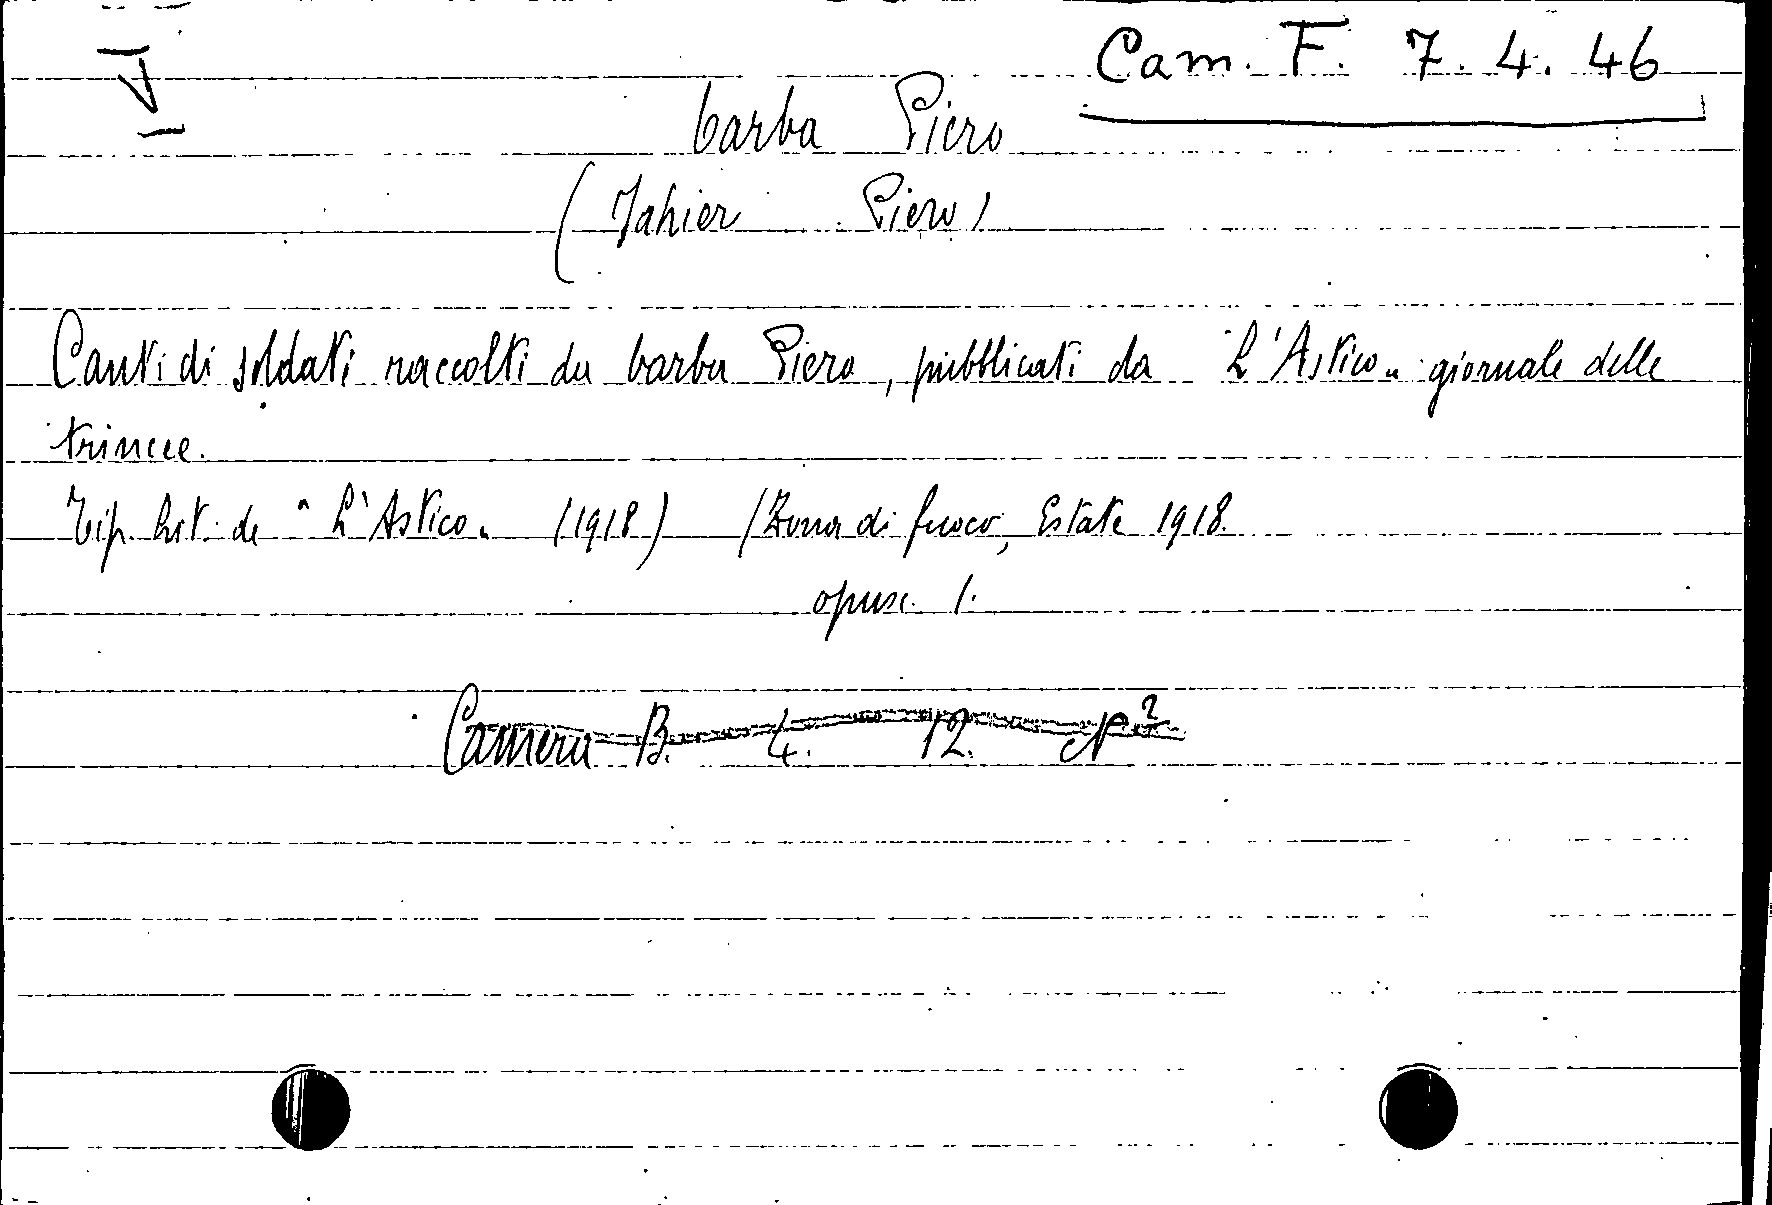 Cam. F. 7. 4. 46
barba Piero
(Jahier Piero)
Canti di soldati raccolti da barba Piero, pubblicati da "L'Astico" giornale delle
trincee.
Tip. de "L'Astico" (1918) (Zona di fuoco, Estate 1918.
opusc. 1.
Camera B. 4. 12. N